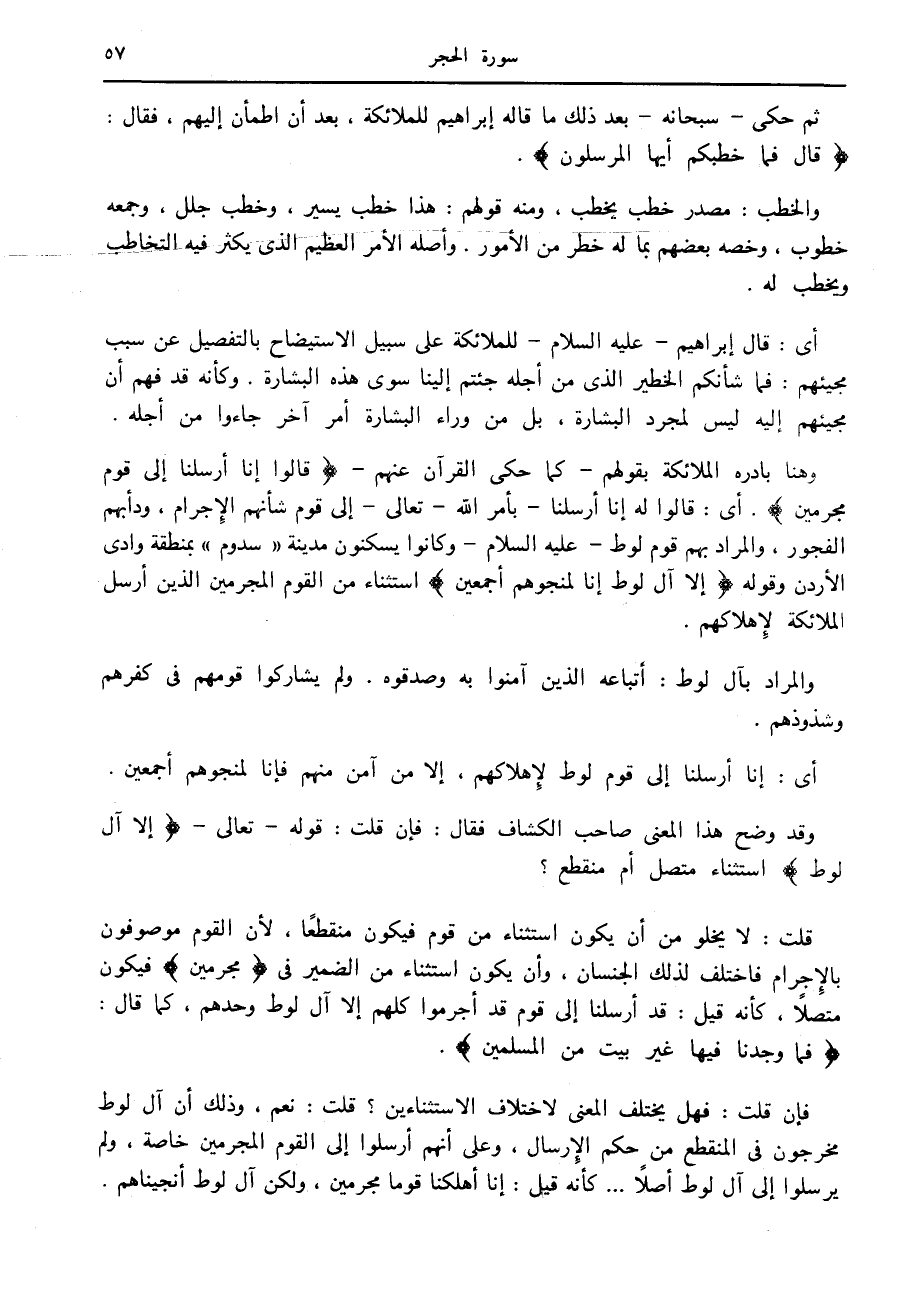 سورة الحجر ٥٧
ثم حكى – سبحانه – بعد ذلك ما قاله إبراهيم للملائكة ، بعد أن اطمأن إليهم ، فقال :
﴿ قال فما خطبكم أيها المرسلون ﴾ .
والخطب : مصدر خطب يخطب ، ومنه قولهم : هذا خطب يسير ، وخطب جلل ، وجمعه
خطوب ، وخصه بعضهم بما له خطر من الأمور . وأصله الأمر العظيم الذى يكثر فيه التخاطب
ويخطب له .
أى : قال إبراهيم – عليه السلام – للملائكة على سبيل الاستيضاح بالتفصيل عن سبب
مجيئهم : فما شأنكم الخطير الذى من أجله جئتم إلينا سوى هذه البشارة . وكأنه قد فهم أن
مجيئهم إليه ليس لمجرد البشارة ، بل من وراء البشارة أمر آخر جاءوا من أجله .
وهنا بادره الملائكة بقولهم – كما حكى القرآن عنهم – ﴿ قالوا إنا أرسلنا إلى قوم
مجرمين ﴾ . أى : قالوا له إنا أرسلنا – بأمر الله – تعالى – إلى قوم شأنهم الإجرام ، ودأبهم
الفجور ، والمراد بهم قوم لوط – عليه السلام – وكانوا يسكنون مدينة « سدوم » بمنطقة وادى
الأردن وقوله ﴿ إلا آل لوط إنا لمنجوهم أجمعين ﴾ استثناء من القوم المجرمين الذين أرسل
الملائكة لإهلاكهم .
والمراد بآل لوط : أتباعه الذين آمنوا به وصدقوه . ولم يشاركوا قومهم فى كفرهم
وشذوذهم .
أى : إنا أرسلنا إلى قوم لوط لإهلاكهم ، إلا من آمن منهم فإنا لمنجوهم أجمعين .
وقد وضح هذا المعنى صاحب الكشاف فقال : فإن قلت : قوله – تعالى – ﴿ إلا آل
لوط ﴾ استثناء متصل أم منقطع ؟
قلت : لا يخلو من أن يكون استثناء من قوم فيكون منقطعًا ، لأن القوم موصوفون
بالإجرام فاختلف لذلك الجنسان ، وأن يكون استثناء من الضمير فى ﴿ مجرمين ﴾ فيكون
متصلًا ، كأنه قيل : قد أرسلنا إلى قوم قد أجرموا كلهم إلا آل لوط وحدهم ، كما قال :
﴿ فما وجدنا فيها غير بيت من المسلمين ﴾ .
فإن قلت : فهل يختلف المعنى لاختلاف الاستثناءين ؟ قلت : نعم ، وذلك أن آل لوط
مخرجون فى المنقطع من حكم الإرسال ، وعلى أنهم أرسلوا إلى القوم المجرمين خاصة ، ولم
يرسلوا إلى آل لوط أصلًا ... كأنه قيل : إنا أهلكنا قوما مجرمين ، ولكن آل لوط أنجيناهم .